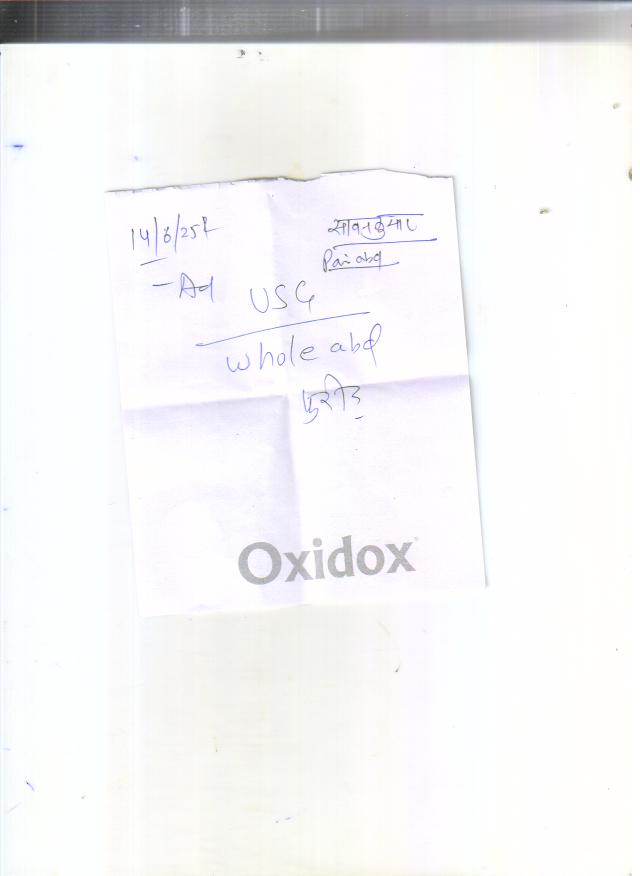 14/6/25
सावनकुमार
Pain abd
- Ad
USG
whole abd
Oxidox